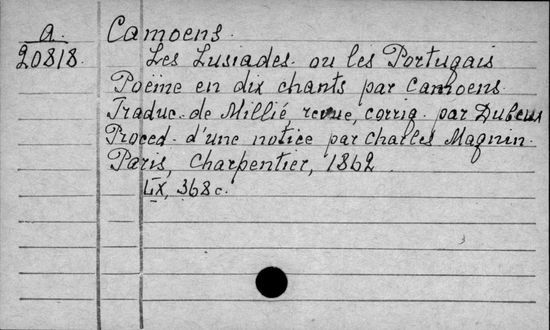 a. Camoens.
20818. Les Lusiades ou les Portugais
Poëme en dix chants par Camoens.
Traduc. de Millié, revue, corrig. par Dubeux
Proced. d'une notice par Charles Magnin.
Paris, Charpentier, 1862.
LIX, 368 c.